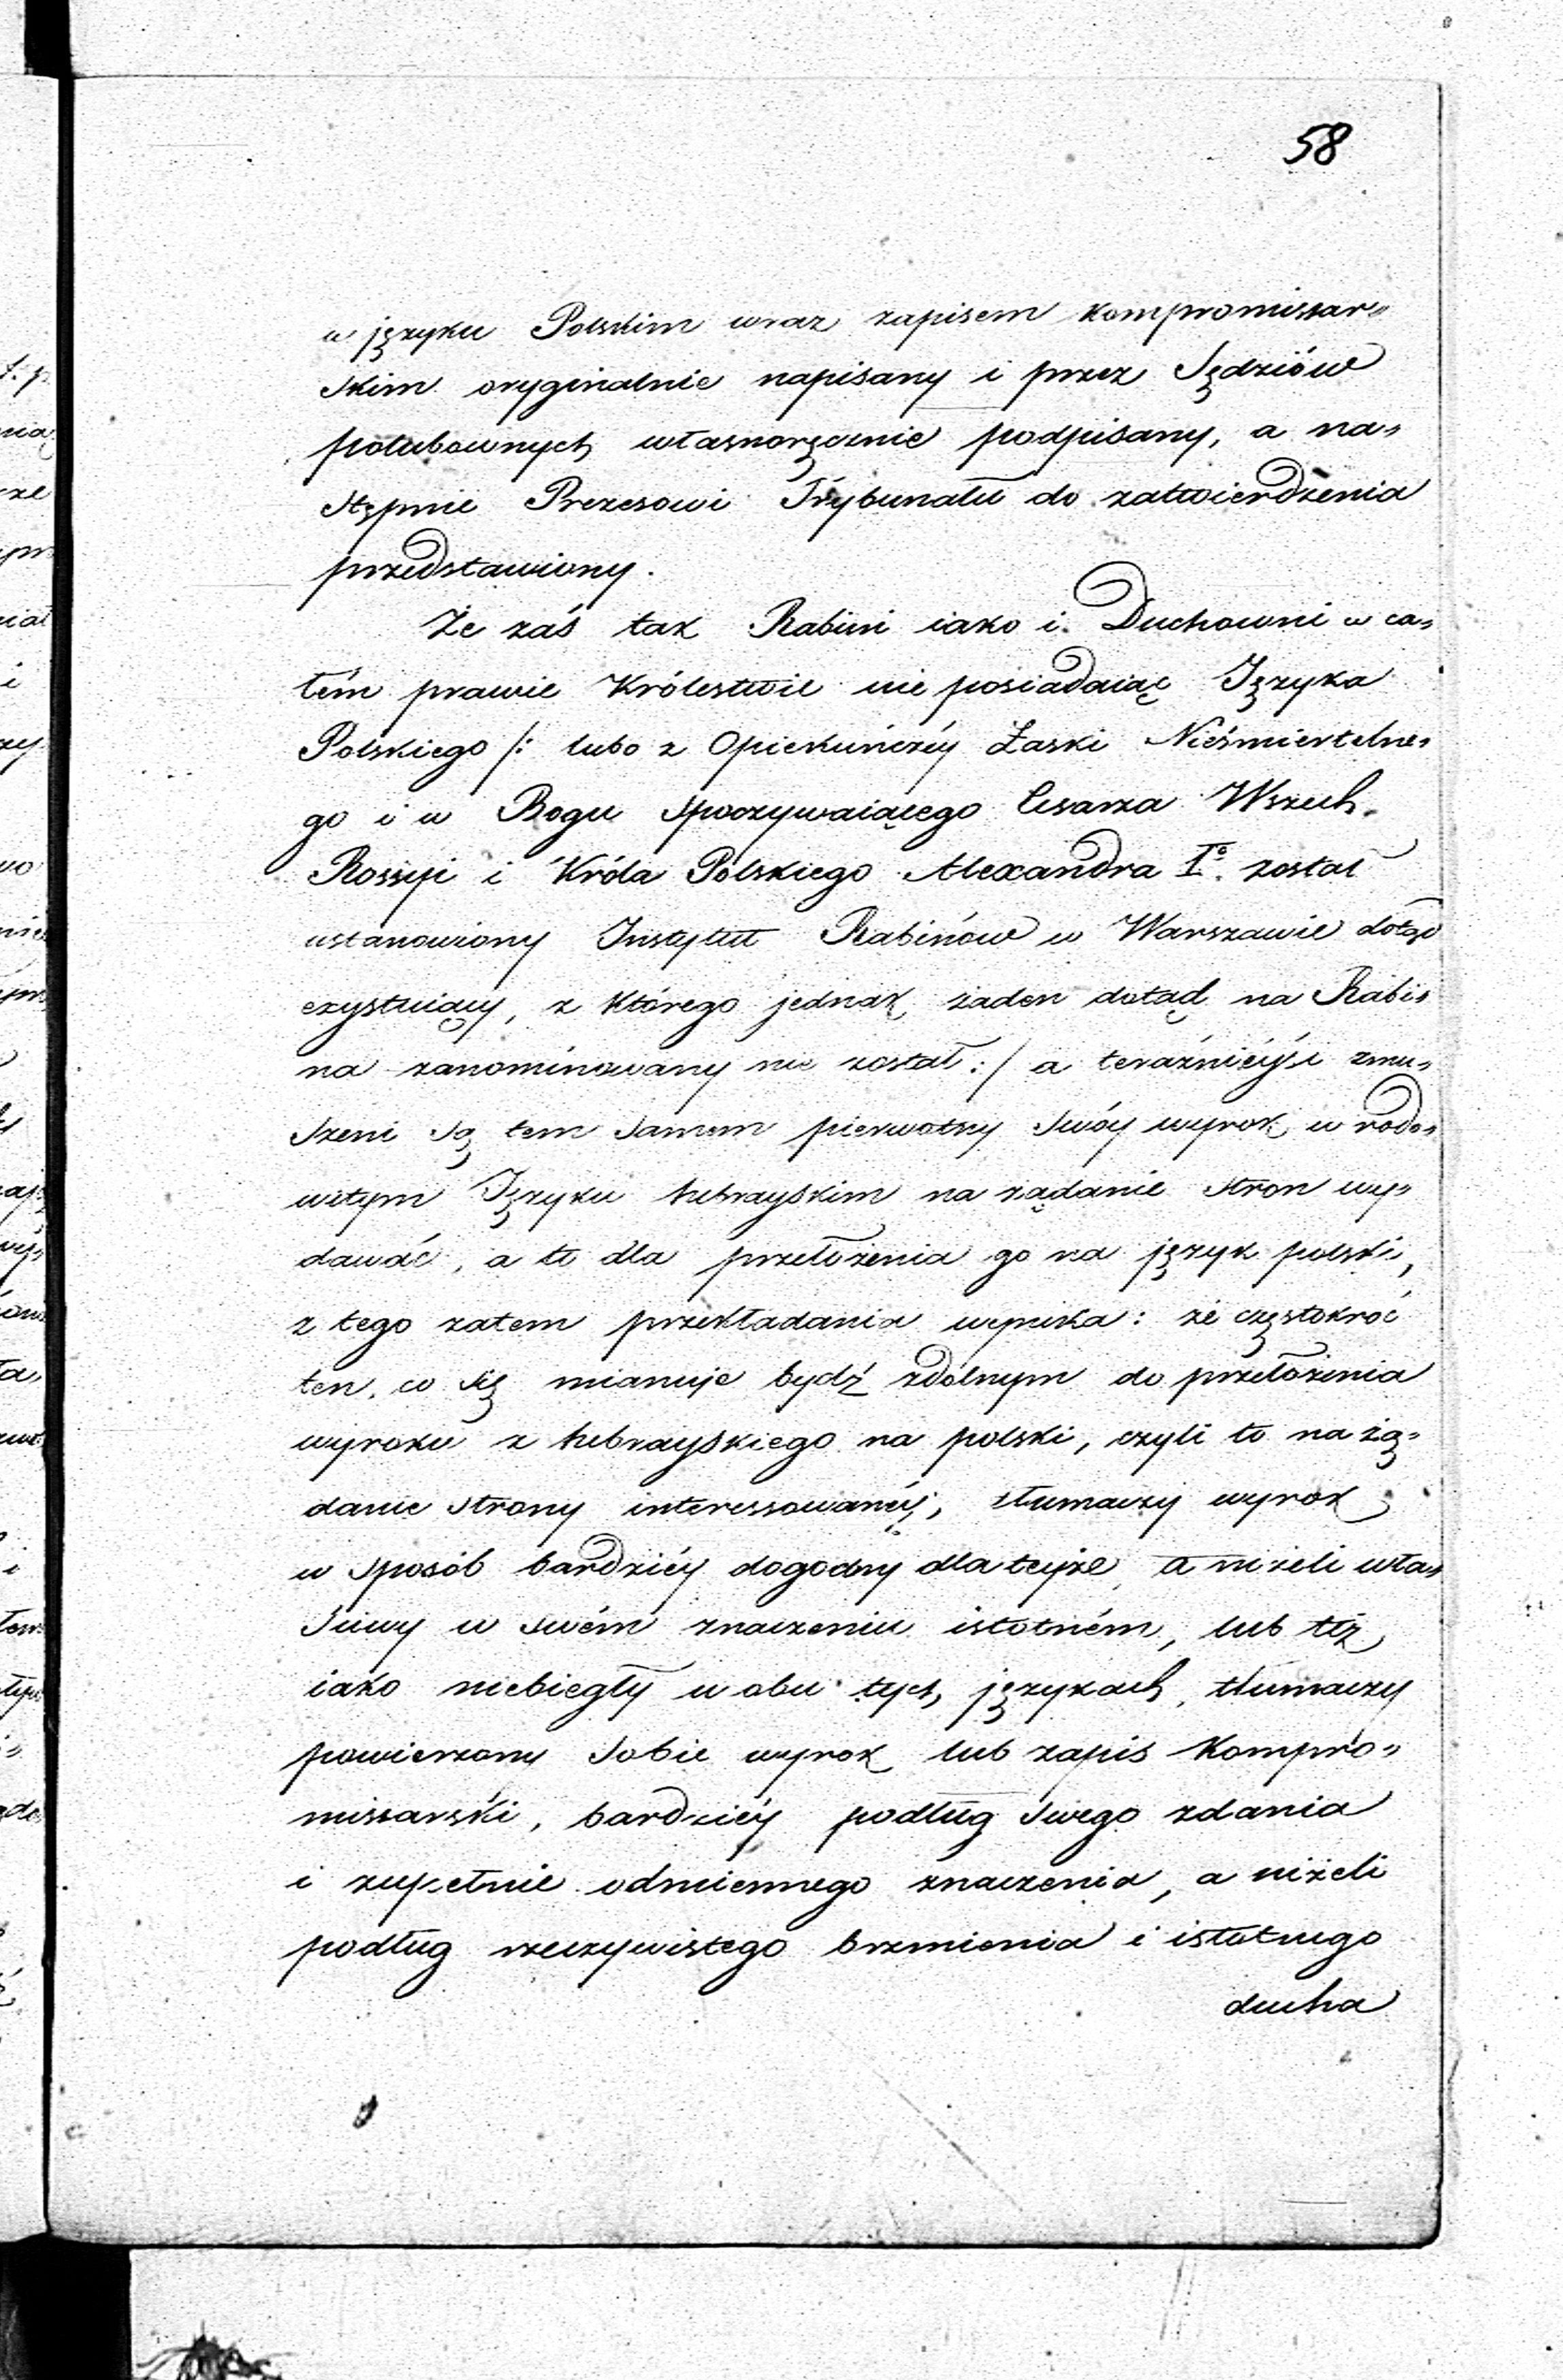 58
w języku Polskim wraz zapisem kompromissar„
skim oryginalnie napisany i przez Sędziów
polubownych własnoręcznie podpisany, a na„
stępnie Prezesowi Trybunału do zatwierdzenia
przedstawiony.
Że zaś tak Rabini iako i Duchowni w ca„
łém prawie Królestwie nie posiadaiąc Języka
Polskiego /: lubo z Opiekuńczéy Łaski Nieśmiertelne„
go i w Bogu spoczywaiącego Cesarza Wszech
Rossyi i Króla Polskiego Alexandra Iº. został
ustanowiony Instytut Rabinów w Warszawie dotąd
exystuiący, z którego jednak żaden dotąd na Rabi„
na zanominowany nie został :/ a teraźnieysi zmu„
szeni są tem samem pierwotny swóy wyrok w rodo„
witym Języku hebrayskim na żądanie stron wy„
dawać, a to dla przełożenia go na język polski,
z tego zatem przekładania wynika: że częstokroć
ten, co się mianuje bydź zdólnym do przełożenia
wyroku z hebrayskiego na polski, czyli to na żą„
danie strony interessowanéy, tłumaczy wyrok
w sposób bardziéy dogodny dla teyże, a niżeli wła„
ściwy w swém znaczeniu istotném, lub téż
iako niebiegły w obu tych językach, tłumaczy
powierzony sobie wyrok lub zapis Kompro„
missarski, bardziéy podług swego zdania
i zupełnie odmiennego znaczenia, a niżeli
podług rzeczywistego brzmienia i istotnego
ducha